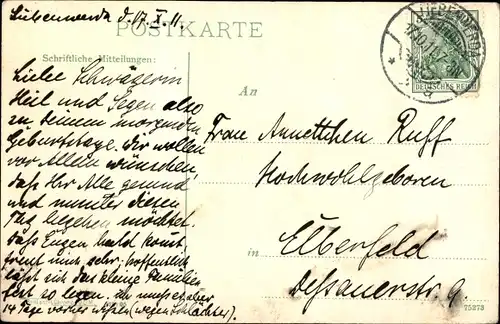 Liebenwerda d. 17. X. 11.
POSTKARTE
LIEBENWERDA
17.10.11. 7-8N.
DEUTSCHES REICH
Schriftliche Mitteilungen:
Liebe Schwägerin
Heil und Segen also
zu Deinem morgenden
Geburtstage. Wir wollen
vor Allem wünschen,
daß Ihr Alle gesund
und munter diesen
Tag begehen möchtet.
Daß Eugen bald kommt,
freut mich sehr; hoffentlich
läßt sich das kleine Familien-
fest so legen. Ich muß es aber
14 Tage vorher wissen (wegen Schlächter).
An
Frau Annettchen Ruff
Hochwohlgeboren
in Elberfeld
Dessauerstr. 9.
75273